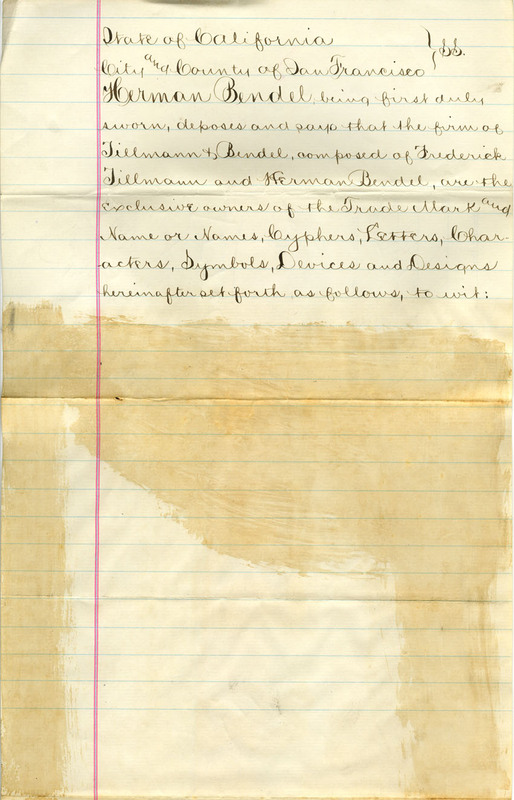 State of California } ss.
City and County of San Francisco
Herman Bendel, being first duly
sworn, deposes and says that the firm of
Tillmann & Bendel, composed of Frederick
Tillmann and Herman Bendel, are the
exclusive owners of the Trade Mark and
Name or Names, Cyphers, Letters, Char-
acters, Symbols, Devices and Designs
hereinafter set forth as follows, to wit: